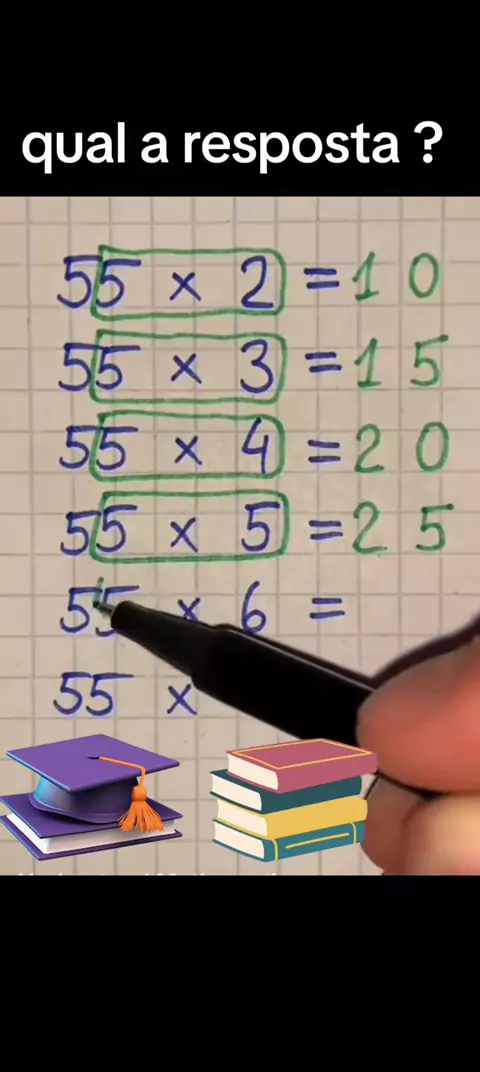 qual a resposta ?
55 × 2 = 1 0
55 × 3 = 1 5
55 × 4 = 2 0
55 × 5 = 2 5
55 × 6 =
55 ×